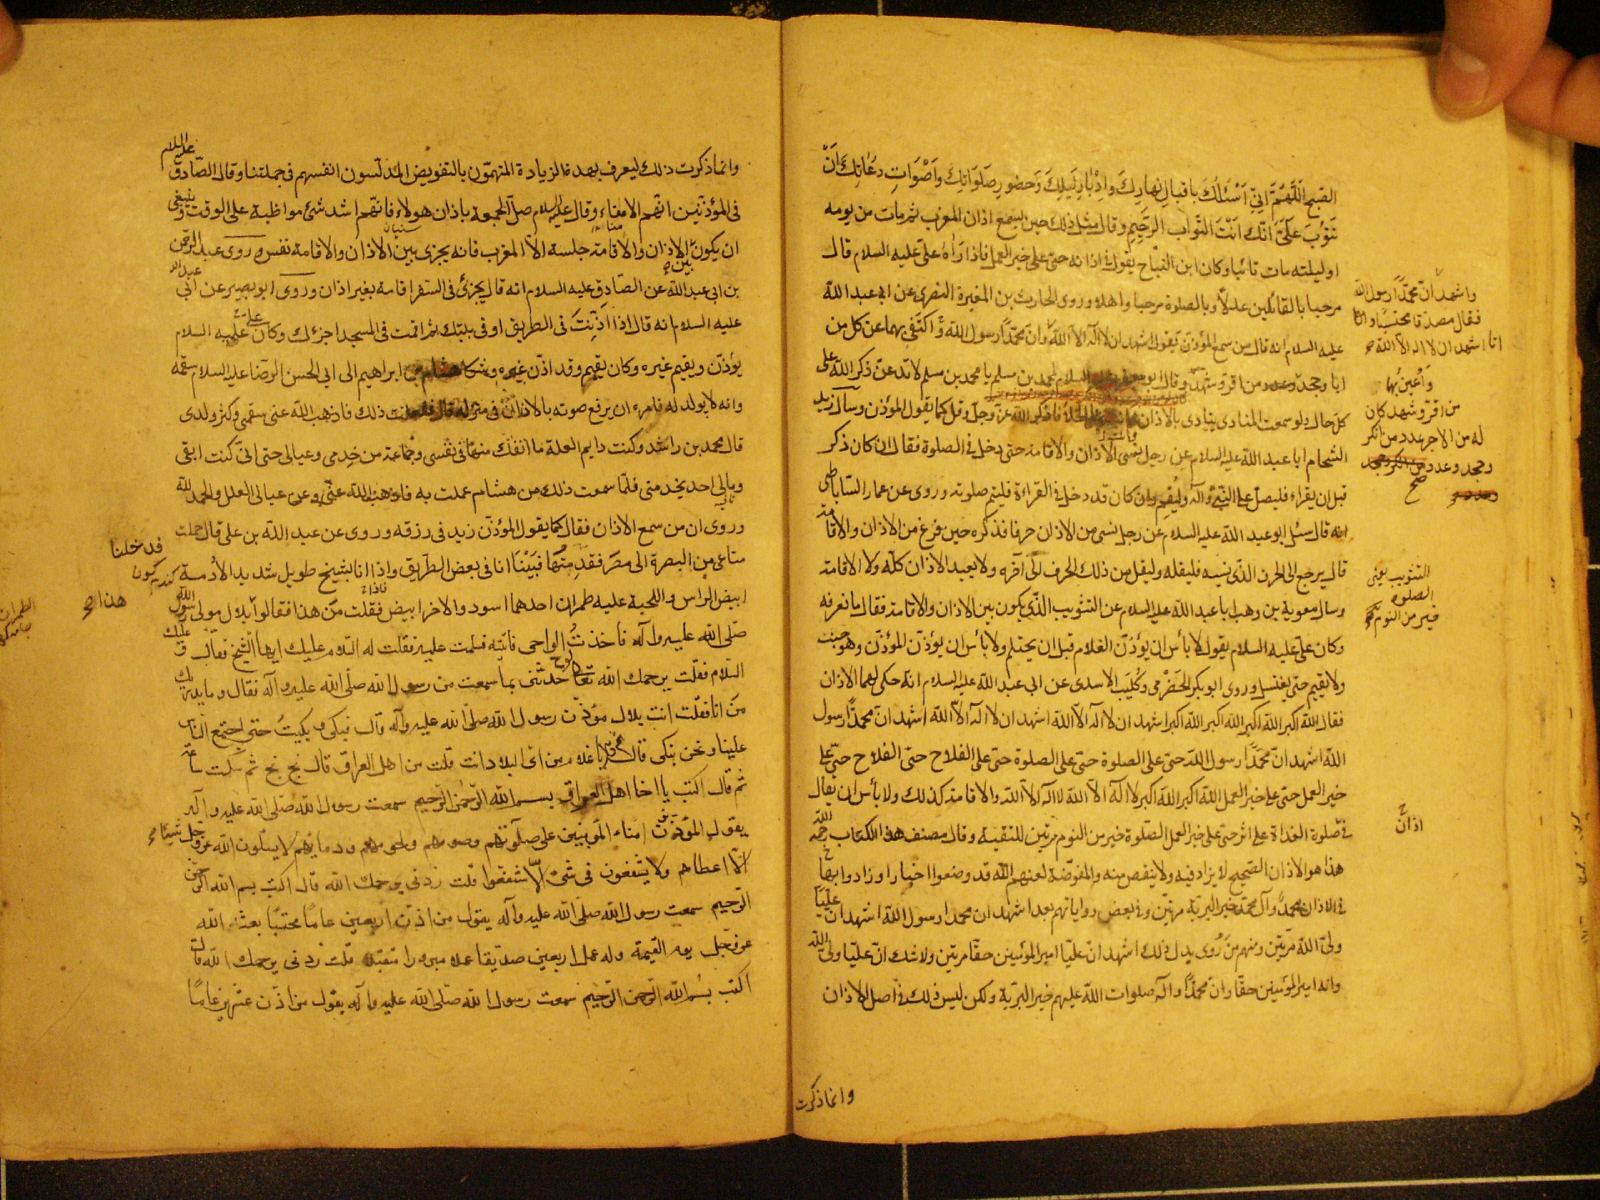 الصبح اللهم اني اسئلك باقبال نهارك وادبار ليلك وحضور صلواتك واصوات دعاتك ان
تتوب علي انك انت التواب الرحيم وقال مثل ذلك حين يسمع اذان المغرب ثم مات من يومه
او ليلته مات تائبا وكان ابن النباح يقول في اذانه حي على خير العمل فاذا راه علي عليه السلام قال
مرحبا بالقائلين عدلا وبالصلوة مرحبا واهلا وروى الحارث بن المغيرة النصري عن ابي عبد الله
عليه السلام انه قال من سمع المؤذن يقول اشهد ان لا اله الا الله وان محمدا رسول الله واكتفى بهما عن كل من
ابا وجحد وعدد من اقر وشهد وقال ابو جعفر عليه السلام لمحمد بن مسلم يا محمد بن مسلم لا تدعن ذكر الله على
كل حال ولو سمعت المنادي ينادي بالاذان فاذكر الله عز وجل وقل كما يقول المؤذن وسال زيد
الشحام ابا عبد الله عليه السلام عن رجل نسي الاذان والاقامة حتى دخل في الصلوة فقال ان كان ذكر
قبل ان يقراء فليصل على النبي وآله وليقم وان كان قد دخل في القراءة فليتم صلوته وروى عن عمار الساباطي
انه قال سئل ابو عبد الله عليه السلام عن رجل نسي من الاذان حرفا فذكره حين فرغ من الاذان والاقامة
قال يرجع الى الحرف الذي نسيه فليقله وليقل من ذلك الحرف الى آخره ولا يعيد الاذان كله ولا الاقامة
وسال معوية بن وهب ابا عبد الله عليه السلام عن التثويب الذي يكون بين الاذان والاقامة فقال ما نعرفه
وكان علي عليه السلام يقول لا بأس ان يؤذن الغلام قبل ان يحتلم ولا بأس ان يؤذن المؤذن وهو جنب
ولا يقيم حتى يغتسل وروى ابو بكر الحضرمي وكليب الاسدي عن ابي عبد الله عليه السلام انه حكى لهما الاذان
فقال الله اكبر الله اكبر الله اكبر الله اكبر اشهد ان لا اله الا الله اشهد ان لا اله الا الله اشهد ان محمدا رسول
الله اشهد ان محمدا رسول الله حي على الصلوة حي على الصلوة حي على الفلاح حي على الفلاح حي على
خير العمل حي على خير العمل الله اكبر الله اكبر لا اله الا الله لا اله الا الله والاقامة كذلك ولا بأس ان يقال
في صلوة الغداة على اثر حي على خير العمل الصلوة خير من النوم مرتين للتقية وقال مصنف هذا الكتاب رحمه الله
هذا هو الاذان الصحيح لا يزاد فيه ولا ينقص منه والمفوضة لعنهم الله قد وضعوا اخبارا وزادوا بها
في الاذان محمد وآل محمد خير البرية مرتين وفي بعض رواياتهم بعد اشهد ان محمدا رسول الله اشهد ان عليا
ولي الله مرتين ومنهم من روى بدل ذلك اشهد ان عليا امير المؤمنين حقا مرتين ولا شك ان عليا ولي الله
وانه امير المؤمنين حقا وان محمدا وآله صلوات الله عليهم خير البرية ولكن ليس ذلك في اصل الاذان
وانما ذكرت
واشهد ان محمدا رسول الله
فقال مصدقا محتسبا وانا
انا اشهد ان لا اله الا الله
واعين بها
من اقر وشهد كان
له من الاجر عدد من انكر
وجحد وعدد
صح
التثويب يعني
الصلوه
خير من النوم
اذان
وانما ذكرت ذلك ليعرف بهذه الزيادة المتهمون بالتفويض المدلسون انفسهم في جملتنا وقال الصادق عليه السلام
في المؤذنين انهم الامناء وقال عليه السلام صل الجمعة باذان هولاء فانهم اشد شئ مواظبة على الوقت وينبغي
ان يكون بين الاذان والاقامة جلسة الا المغرب فانه يجزى بين الاذان والاقامة نفس وروى عبد الرحمن
بن ابي عبد الله عن الصادق عليه السلام انه قال يجزئ في السفر اقامة بغير اذان وروى ابو بصير عن ابي عبد الله
عليه السلام انه قال اذا اذنت في الطريق او في بيتك ثم اقمت في المسجد اجزئك وكان علي عليه السلام
يؤذن ويقيم غيره وكان يقيم وقد اذن غيره وشكا هشام بن ابراهيم الى ابي الحسن الرضا عليه السلام سقمه
وانه لا يولد له فامره ان يرفع صوته بالاذان في منزله قال ففعلت ذلك فاذهب الله عني سقمي وكثر ولدى
قال محمد بن راشد وكنت دايم العلة ما انفك منها في نفسي وجماعة من خدمي وعيالى حتى اني كنت ابقى
ومالي احد يخدمني فلما سمعت ذلك من هشام عملت به فاذهب الله عني وعن عيالى العلل والحمد لله
وروى ان من سمع الاذان فقال كما يقول المؤذن زيد في رزقه وروى عن عبد الله بن علي قال حملت
متاعي من البصرة الى مصر فقدمتها فبينا انا في بعض الطريق واذا انا بشيخ طويل شديد الادمة
ابيض الراس واللحية عليه طمران احدهما اسود والاخر ابيض فقلت من هذا فقالوا بلال مولى رسول الله
صلى الله عليه وآله فاخذت الواحي فاتيته فسلمت عليه فقلت له السلام عليك ايها الشيخ فقال وعليك
السلام فقلت يرحمك الله تعالى حدثني بما سمعت من رسول الله صلى الله عليه وآله فقال وما يدريك
من انا فقلت انت بلال مؤذن رسول الله صلى الله عليه وآله قال فبكى وبكيت حتى اجتمع الناس
علينا ونحن نبكى قال ثم قال يا غلام من اى البلاد انت قلت من اهل العراق قال بخ بخ ثم سكت ساعة
ثم قال اكتب يا اخا اهل العراق بسم الله الرحمن الرحيم سمعت رسول الله صلى الله عليه وآله
يقول المؤذنون امناء المؤمنين على صلوتهم وصومهم ولحومهم ودمايهم لا يسئلون الله عز وجل شيئا
الا اعطاهم ولا يشفعون في شئ الا شفعوا قلت زدني يرحمك الله قال اكتب بسم الله الرحمن
الرحيم سمعت رسول الله صلى الله عليه وآله يقول من اذن اربعين عاما محتسبا بعثه الله
عز وجل يوم القيمة وله عمل اربعين صديقا عملا مبرورا متقبلا قلت زدني يرحمك الله قال
اكتب بسم الله الرحمن الرحيم سمعت رسول الله صلى الله عليه وآله يقول من اذن عشرين عاما
فدخلنا
هذا صح